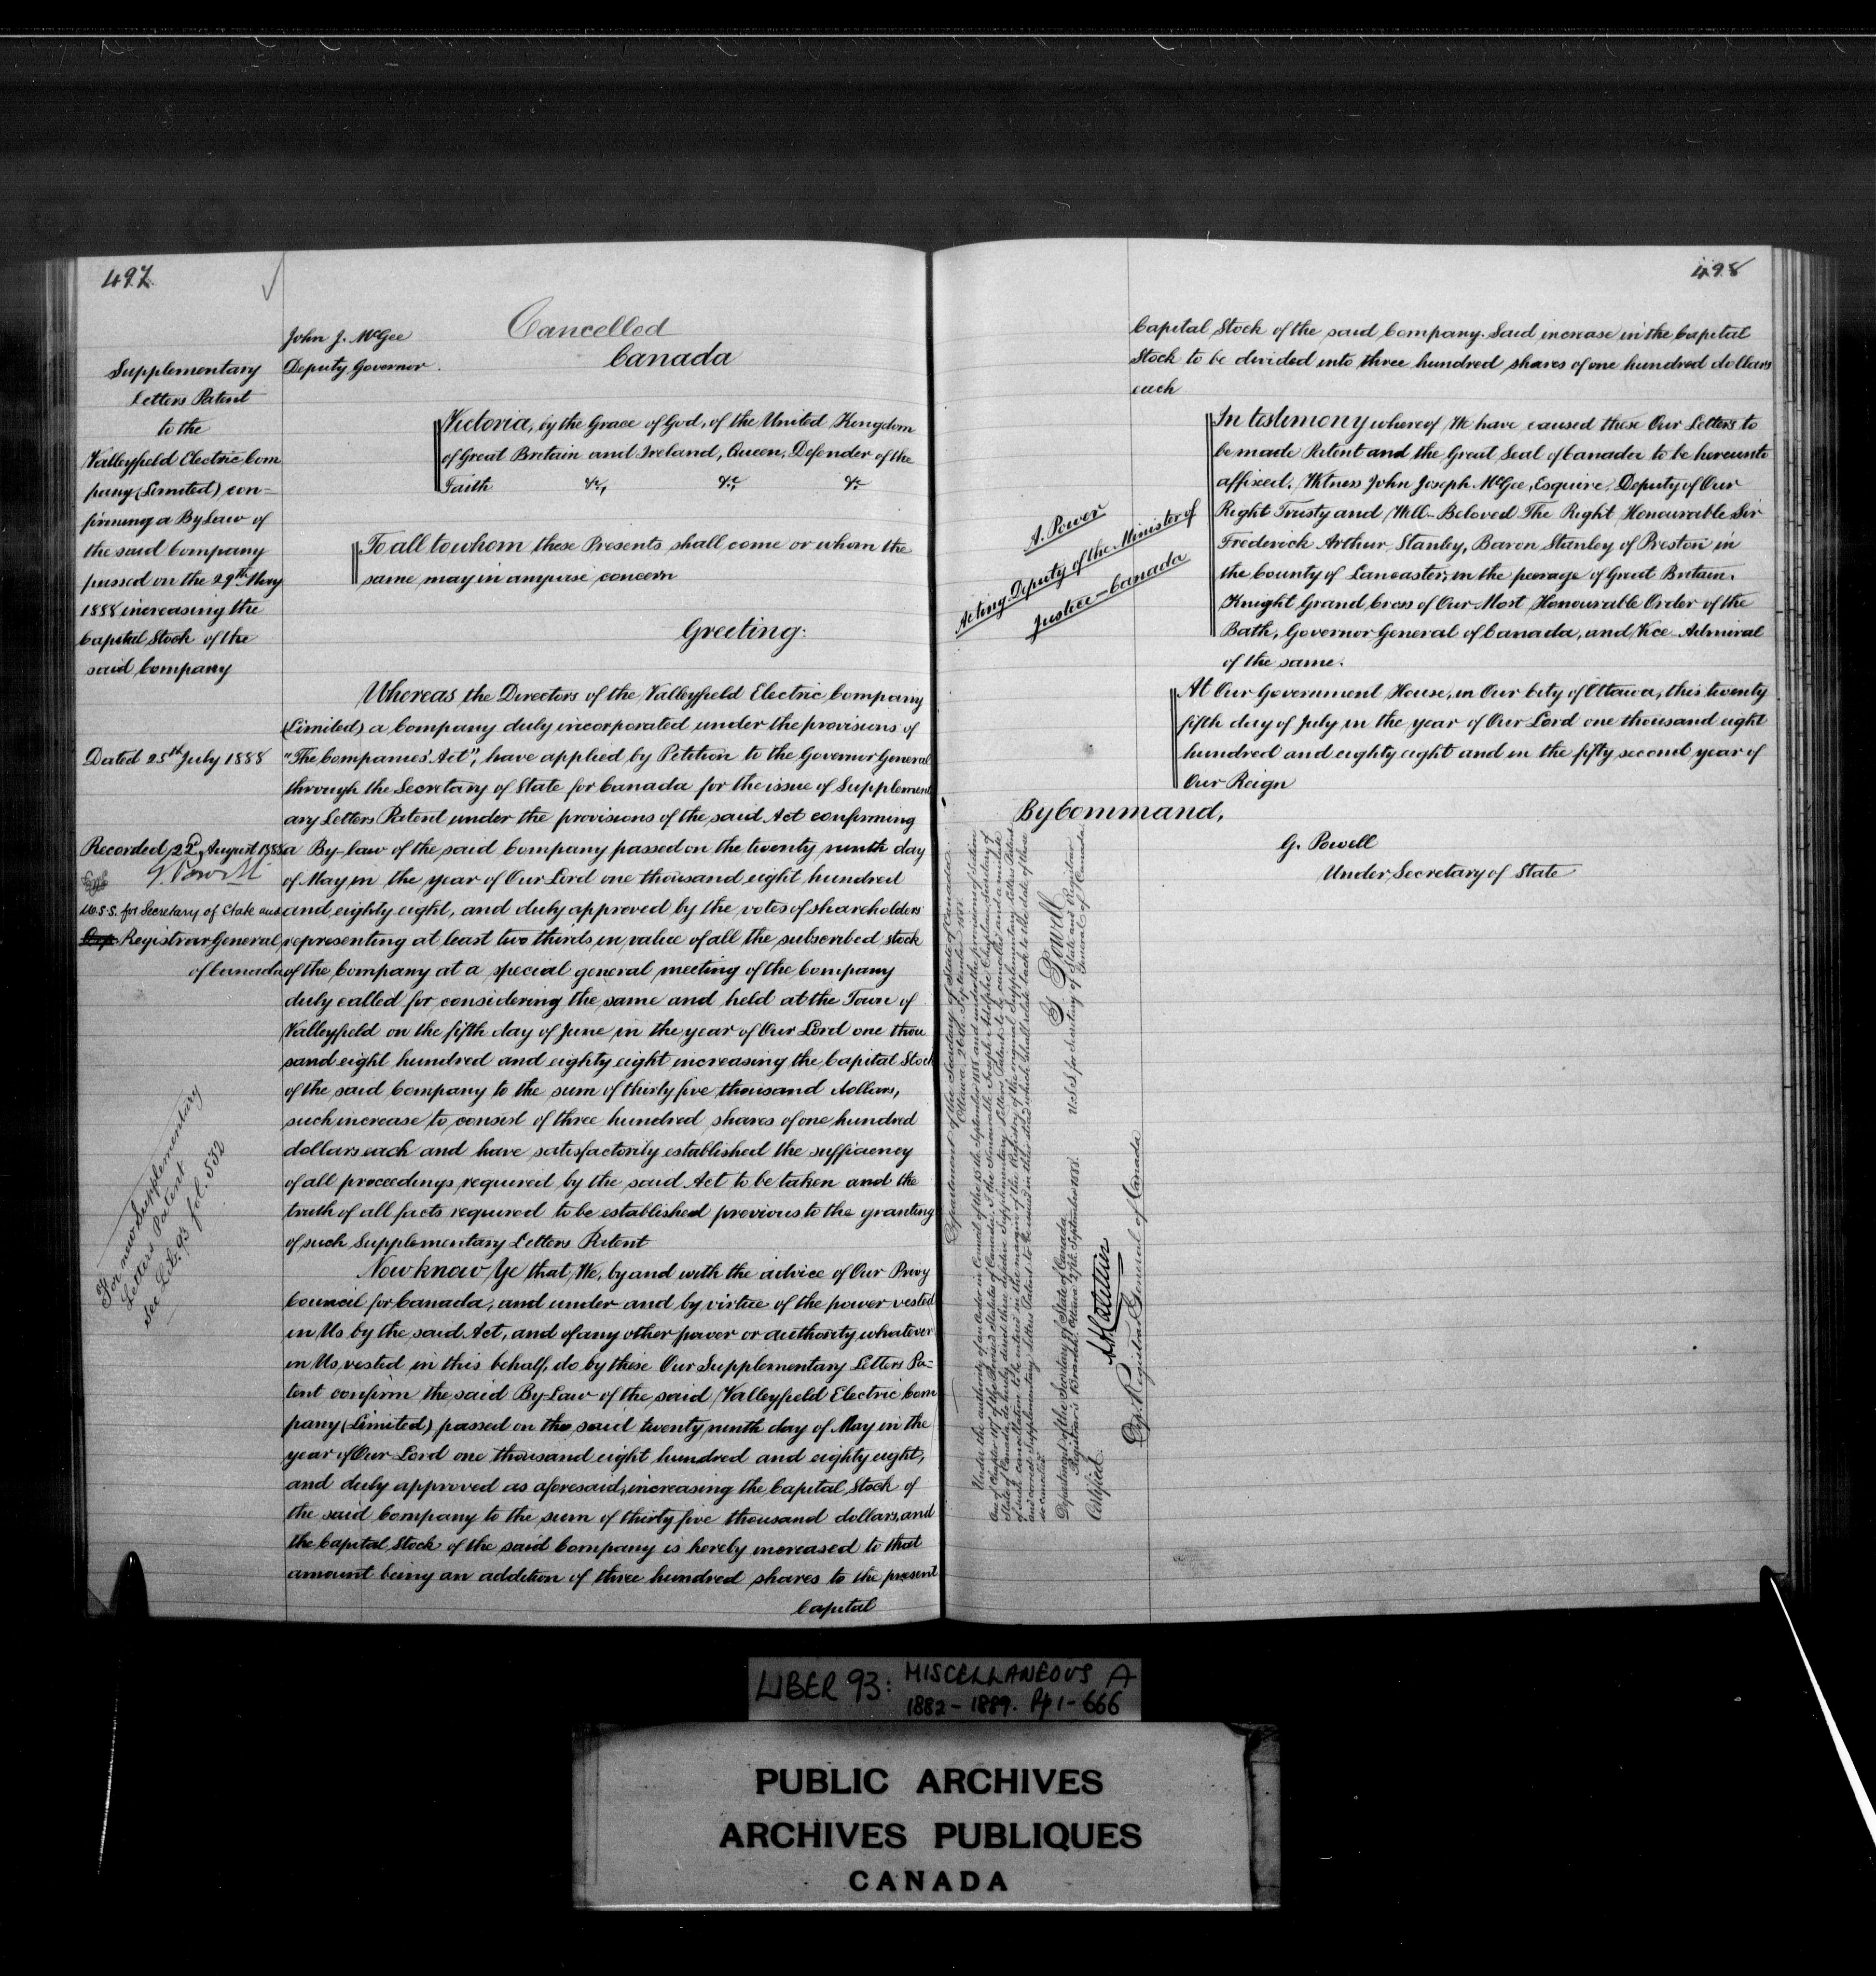 497
John J. McGee
Deputy Governor.
Cancelled
Canada
Supplementary
Letters Patent
to the
Valleyfield Electric Com
pany (Limited) con=
firming a By Law of
the said Company
passed on the 29th May
1888 increasing the
Capital Stock of the
said Company
Dated 25th July 1888
Recorded, 22d August 1888
G. Powell
U.S.S. for Secretary of State and
Registrar General
of Canada
For new Supplementary
Letters Patent
see Lib. 93 fol. 532
Victoria, by the Grace of God, of the United Kingdom
of Great Britain and Ireland, Queen, Defender of the
Faith &c, &c, &c
To all to whom these Presents shall come or whom the
same may in anywise concern
Greeting:
Whereas the Directors of the Valleyfield Electric Company
(Limited) a Company duly incorporated under the provisions of
"The Companies' Act", have applied by Petition to the Governor General
through the Secretary of State for Canada for the issue of Supplement
ary Letters Patent under the provisions of the said Act confirming
a By-law of the said Company passed on the twenty ninth day
of May in the year of Our Lord one thousand eight hundred
and eighty eight, and duly approved by the votes of shareholders
representing at least two thirds in value of all the subscribed stock
of the Company at a special general meeting of the Company
duly called for considering the same and held at the Town of
Valleyfield on the fifth day of June in the year of Our Lord one thou
sand eight hundred and eighty eight increasing the Capital Stock
of the said Company to the sum of thirty five thousand dollars,
such increase to consist of three hundred shares of one hundred
dollars each and have satisfactorily established the sufficiency
of all proceedings required by the said Act to be taken and the
truth of all facts required to be established previous to the granting
of such Supplementary Letters Patent
Now know Ye that, We, by and with the advice of Our Privy
Council for Canada, and under and by virtue of the power vested
in Us by the said Act, and of any other power or authority whatever
in Us vested in this behalf, do by these Our Supplementary Letters Pa=
tent confirm the said By-Law of the said Valleyfield Electric Com
pany (Limited) passed on the said twenty ninth day of May in the
year of Our Lord one thousand eight hundred and eighty eight,
and duly approved as aforesaid, increasing the Capital Stock of
the said Company to the sum of thirty five thousand dollars, and
the Capital Stock of the said Company is hereby increased to that
amount being an addition of three hundred shares to the present
Capital
498
Capital Stock of the said Company. Said increase in the Capital
Stock to be divided into three hundred shares of one hundred dollars
each
In testimony whereof We have caused these Our Letters to
be made Patent and the Great Seal of Canada to be hereunto
affixed. Witness John Joseph McGee, Esquire, Deputy of Our
Right Trusty and Well-Beloved The Right Honourable Sir
Frederick Arthur Stanley, Baron Stanley of Preston in
the County of Lancaster, in the peerage of Great Britain.
Knight Grand Cross of Our Most Honourable Order of the
Bath, Governor General of Canada, and Vice Admiral
of the same.
A. Power
Acting Deputy of the Minister of
Justice - Canada
At Our Government House, in Our City of Ottawa, this twenty
fifth day of July in the year of Our Lord one thousand eight
hundred and eighty eight and in the fifty second year of
Our Reign
By Command,
G. Powell
Under Secretary of State
Department of the Secretary of State of Canada
Ottawa, 26th September 1888.
Under the authority of an Order in Council of the 15th September 1888 and under the provisions of section
of Chapter 119 of the Revised Statutes of Canada, I the Honourable Joseph Adolphe Chapleau, Secretary of
State of Canada, do hereby direct these defective Supplementary Letters Patent to be cancelled and a minute
of such cancellation to be entered in the margin of the Registry of the original Supplementary Letters Patent
and correct Supplementary Letters Patent to be issued in their stead which shall relate back to the date of those
so cancelled.
G. Powell
U.S.S. for Secretary of State and Registrar
General of Canada.
Department of the Secretary of State of Canada
Registrar's Branch. Ottawa 27th September 1888.
Certified.
Dep. Registrar General of Canada
LIBER 93: MISCELLANEOUS A
1882-1889. Pp 1-666
PUBLIC ARCHIVES
ARCHIVES PUBLIQUES
CANADA